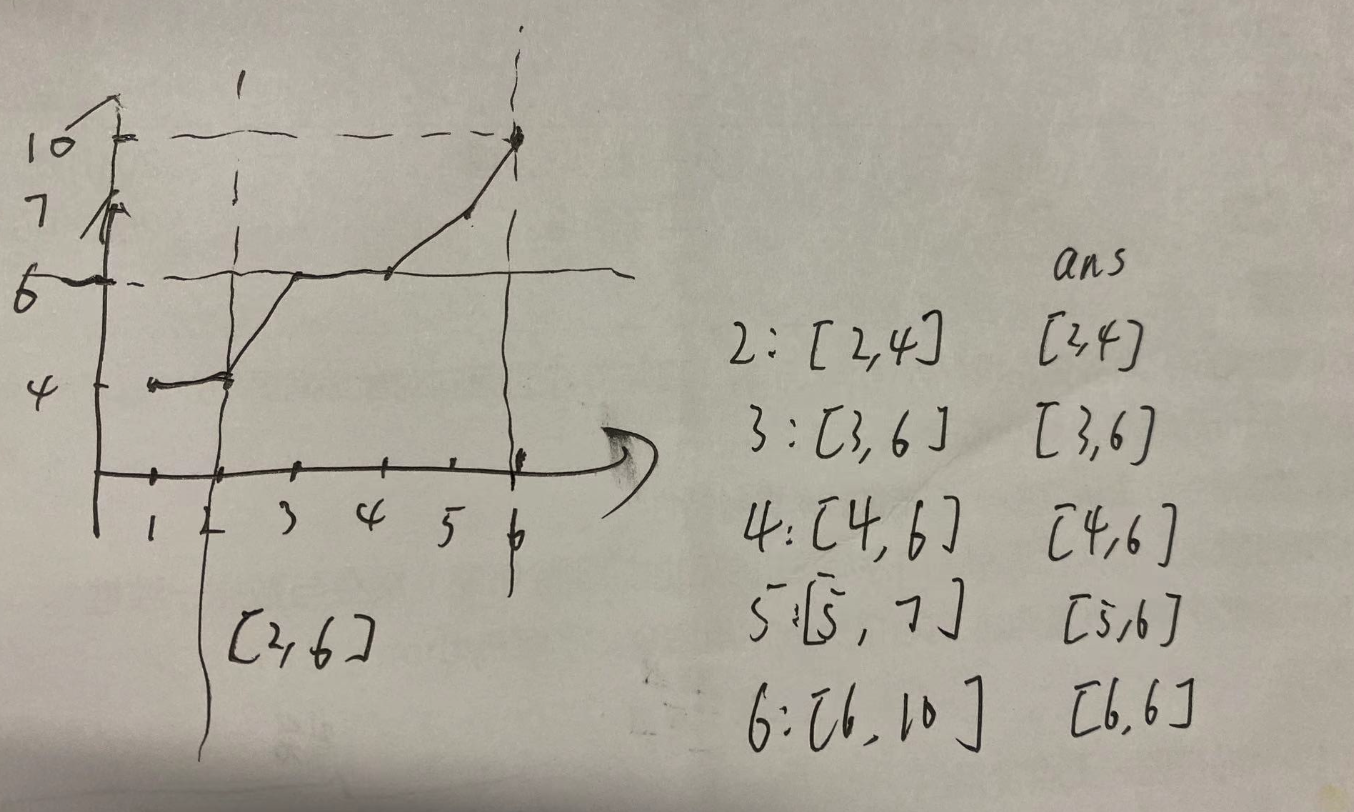 10
7
6
4
1 2 3 4 5 6
[2,6]
ans
2: [2,4] [2,4]
3: [3,6] [3,6]
4: [4,6] [4,6]
5: [5, 7] [5,6]
6: [6, 10] [6,6]